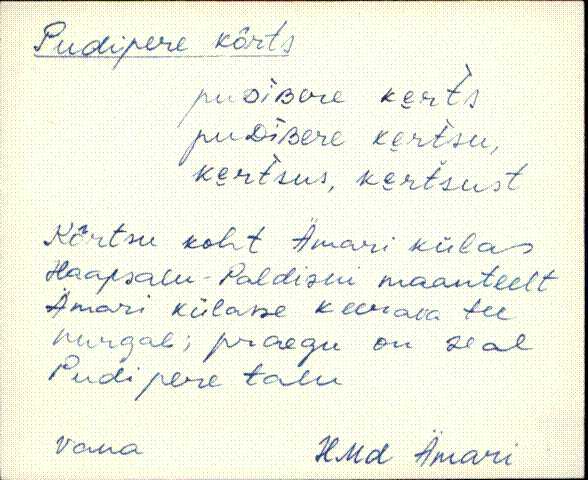 Pudipere kõrts
puDÌBere ke̮rt̀s
puDÌBere ke̮rt̀su,
ke̮rt̀sus, ke̮rt̀sust
Kõrtsu koht Ämari külas
Haapsalu-Paldiski maanteelt
Ämari külasse keerava tee
nurgal; praegu on seal
Pudipere talu
vana HMd Ämari